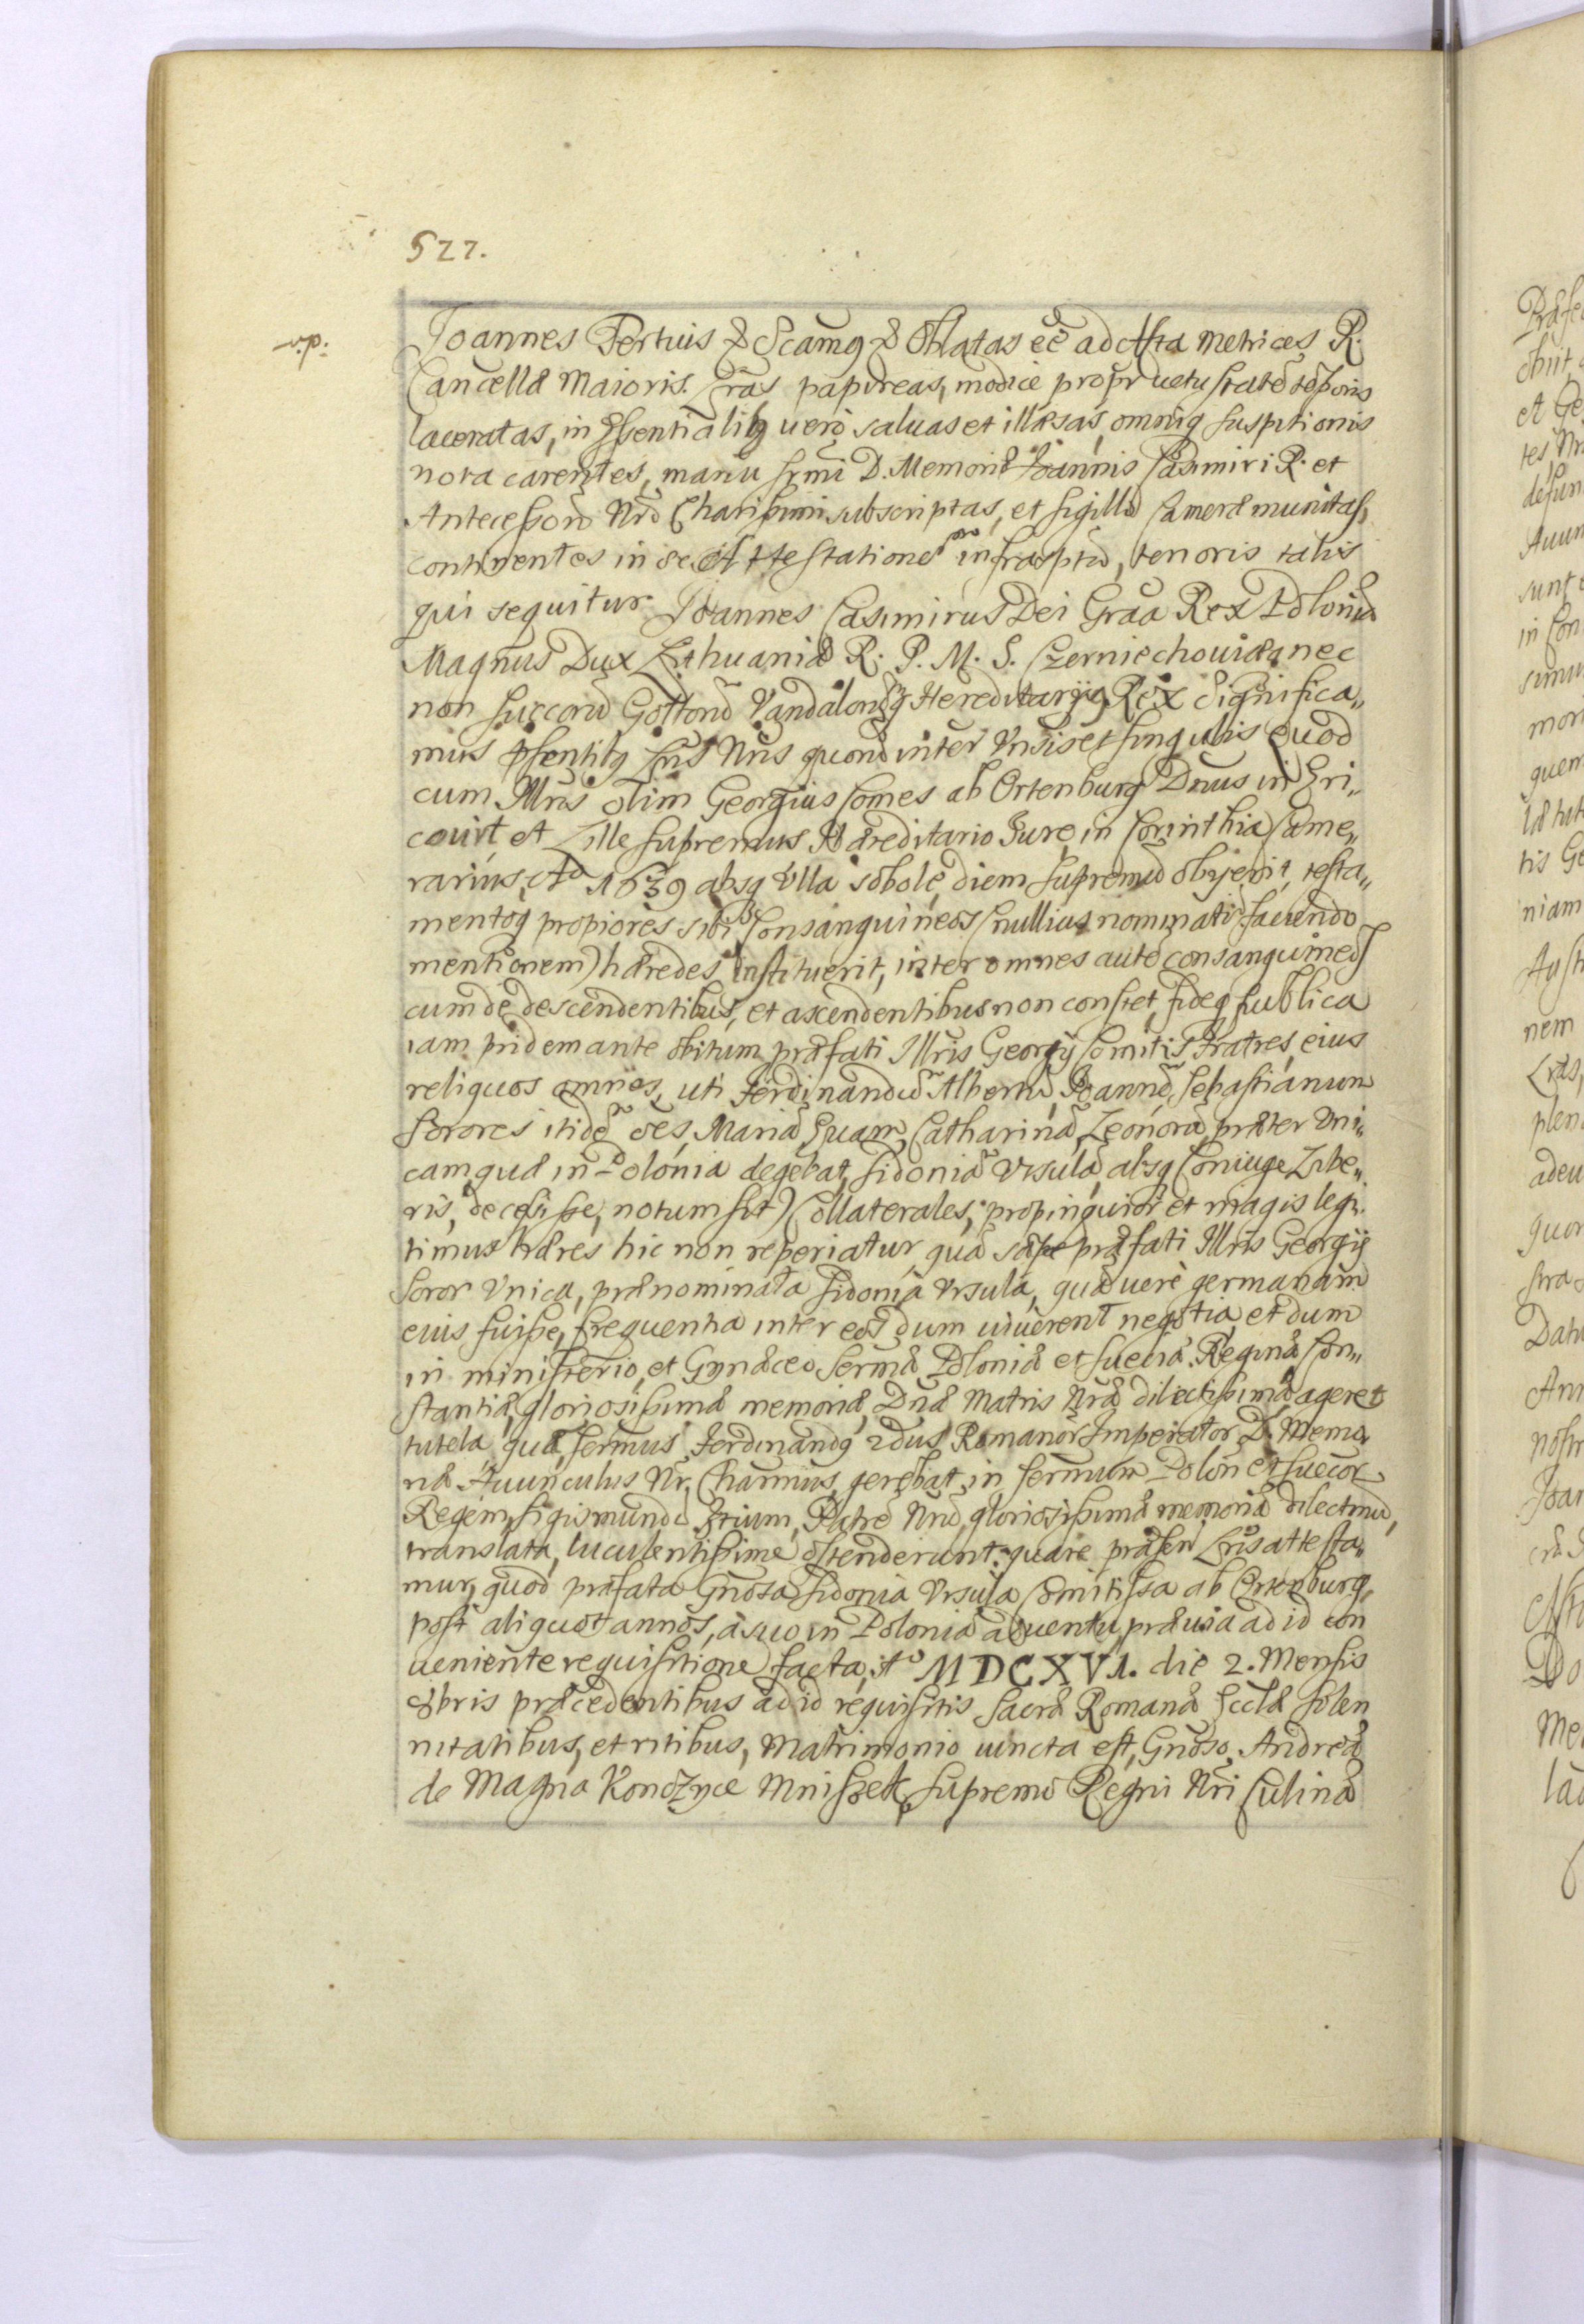 522.
Joannes Tertius & Scamq & Oblatas eē ad Acta Metrices R.
Cancellæ Maioris. Lras papireas, modice propr uetustatē tēporis
laceratas, in Essentialibq uero saluas et illæsas, omniq suspitionis
nota carentes, manu Srmi D. Memoriæ Joannis Casimiri R. et
Antecessorū Nrō Charissimi subscriptas, et sigillo Cameræ munitas,
continentes in se Attestationē infrasptā, tenoris talis
qui sequitur. Joannes Casimirus Dei Graā Rex Poloniæ
Magnus Dux Lithuaniæ R. P. M. S. Czerniechouiæq nec
non Suecorū Gottorū Vandalorūq Hereditariq Rex Significa„
mus pſentibq Lris Nris quorū inter Vnſis et singulis Quod
cum Illris olim Georgius Comes ab Ortenburg Dnus in Eri„
court et Lille supremus Hæreditario Jure in Corinthia Came„
rarius, Aō 1639 absq vlla sobole, diem supremū obijerit, testa„
mentoq propiores sibi Consanguineos (nullius nominatī faciendo
mentionem) hæredes instituerit, inter omnes autē consanguineos
cum de descendentibus, et ascendentibus non constet, fideq publica
iam pridem ante obitum præfati Illris Georgij Comitis Fratres eius
reliquos omnes, uti Ferdinandū Albertū, Joannē, Sebastianum
Sorores itidē oēs, Mariā Euam, Catharinā, Leonorā, præter Vni„
cam, quæ in Polonia degebat, Sidoniā Vrsulā, absq Coniuge Libe„
ris, decessisse, notum sit) Collaterales, propinquior et magis legi„
timus hæres hic non reperiatur, quā sæpe præfati Illris Georgij
Soror Vnica, prænominata Sidonia Vrsula, quā uere germanam
eius fuisse, frequentia inter eos dum uiuerent negotia, et dum
in ministerio, et Gynæceo Sermæ Poloniæ et Sueciæ Reginæ Con„
stantiæ, gloriosissimæ memoriæ, Dnæ Matris Nræ dilectissimæ ageret
tutela, quā sermus Ferdinandq 2dus Romanor Imperator D. Memo„
riæ Auunculus Nr. Charmius, gerebat, in sermum Polon et Suecor
Regem, Sigismundū 3tium, Patrē Nrū, gloriosissimæ memoriæ dilectmū,
translata, luculentissime ostenderunt: quare præsen Lris attesta„
mur, quod præfata Gnosa Sidonia Vrsula Comitissa ab Ortenburg,
post aliquot annos, a suo in Poloniā aduentu, præuia ad id con
ueniente requisitione facta, Aō MDCXVI. die 2. Mensis
8bris præcedentibus ad id requisitis Sacræ Romanæ Eccłæ solen
nitatibus, et ritibus, Matrimonio iuncta est, Gnoso Andreæ
de Magna Konczyce Mniszek, supremo Regni Nri Culinæ